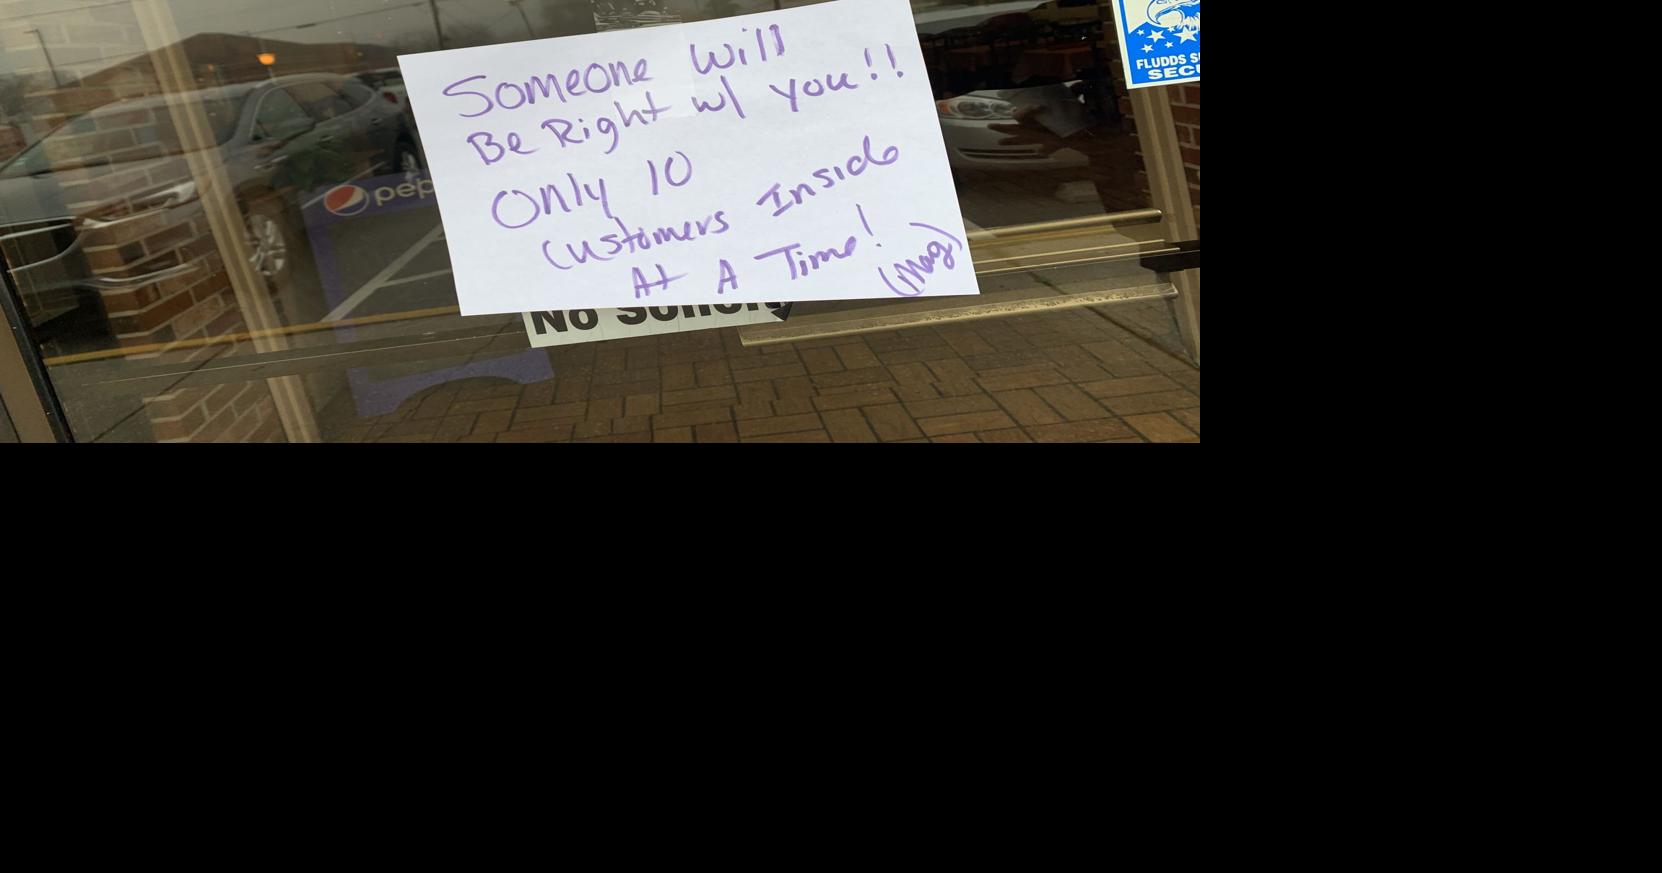 Someone Will
Be Right w/ you!!
Only 10
Customers Inside
At A Time!
(Mag)
pep
No
FLUDDS
SECU